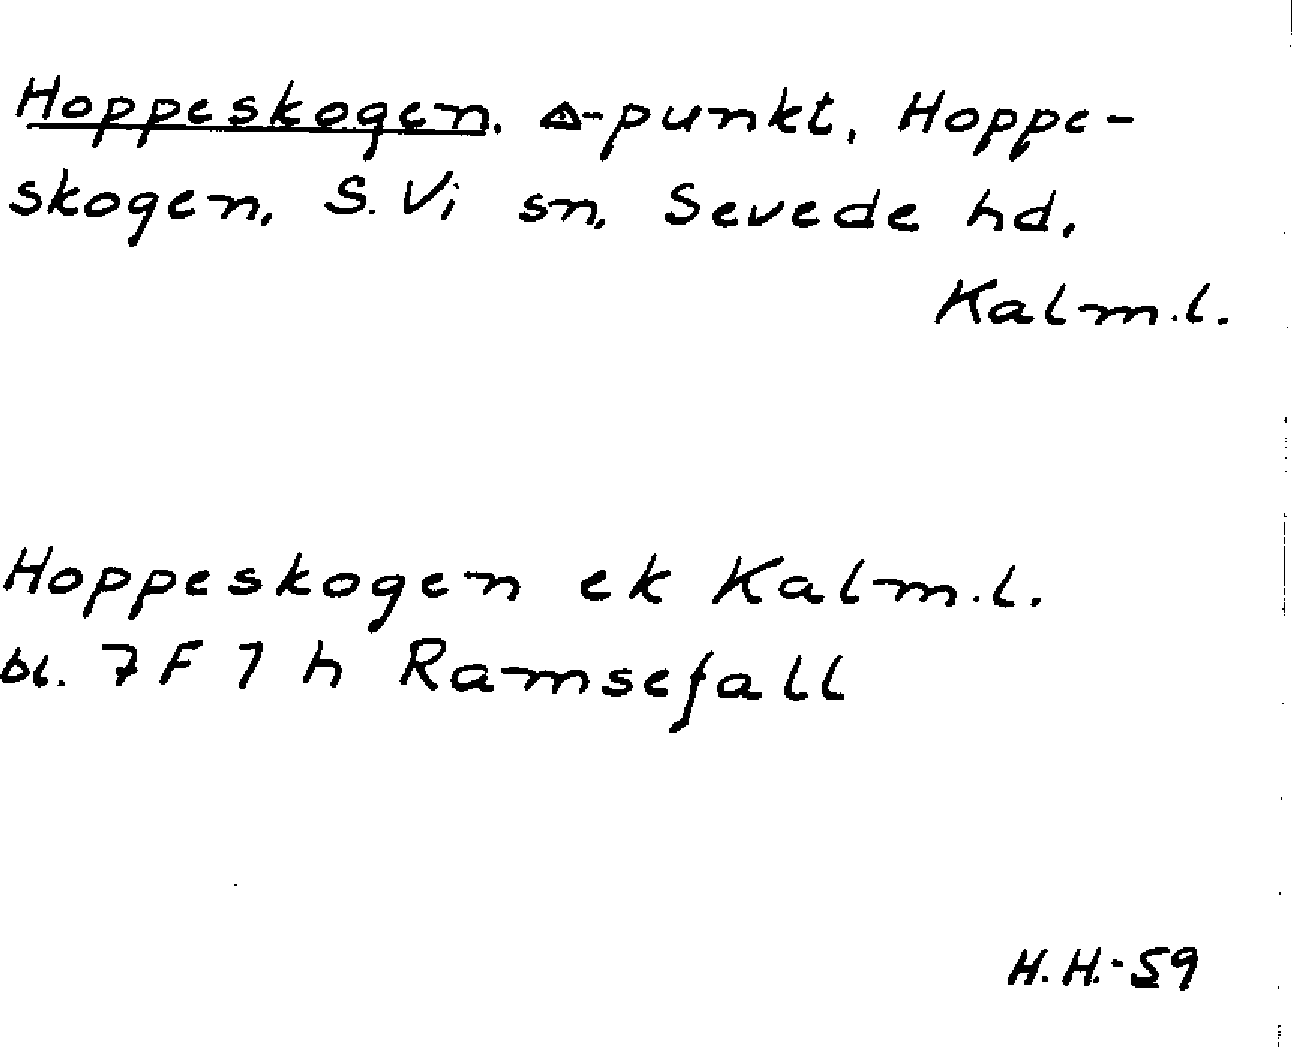 Hoppeskogen. △-punkt, Hoppe-
skogen, S. Vi sn, Sevede hd,
Kalm.l.
Hoppeskogen ek Kalm.l.
bl. 7 F 7 h Ramsefall
H.H.-59